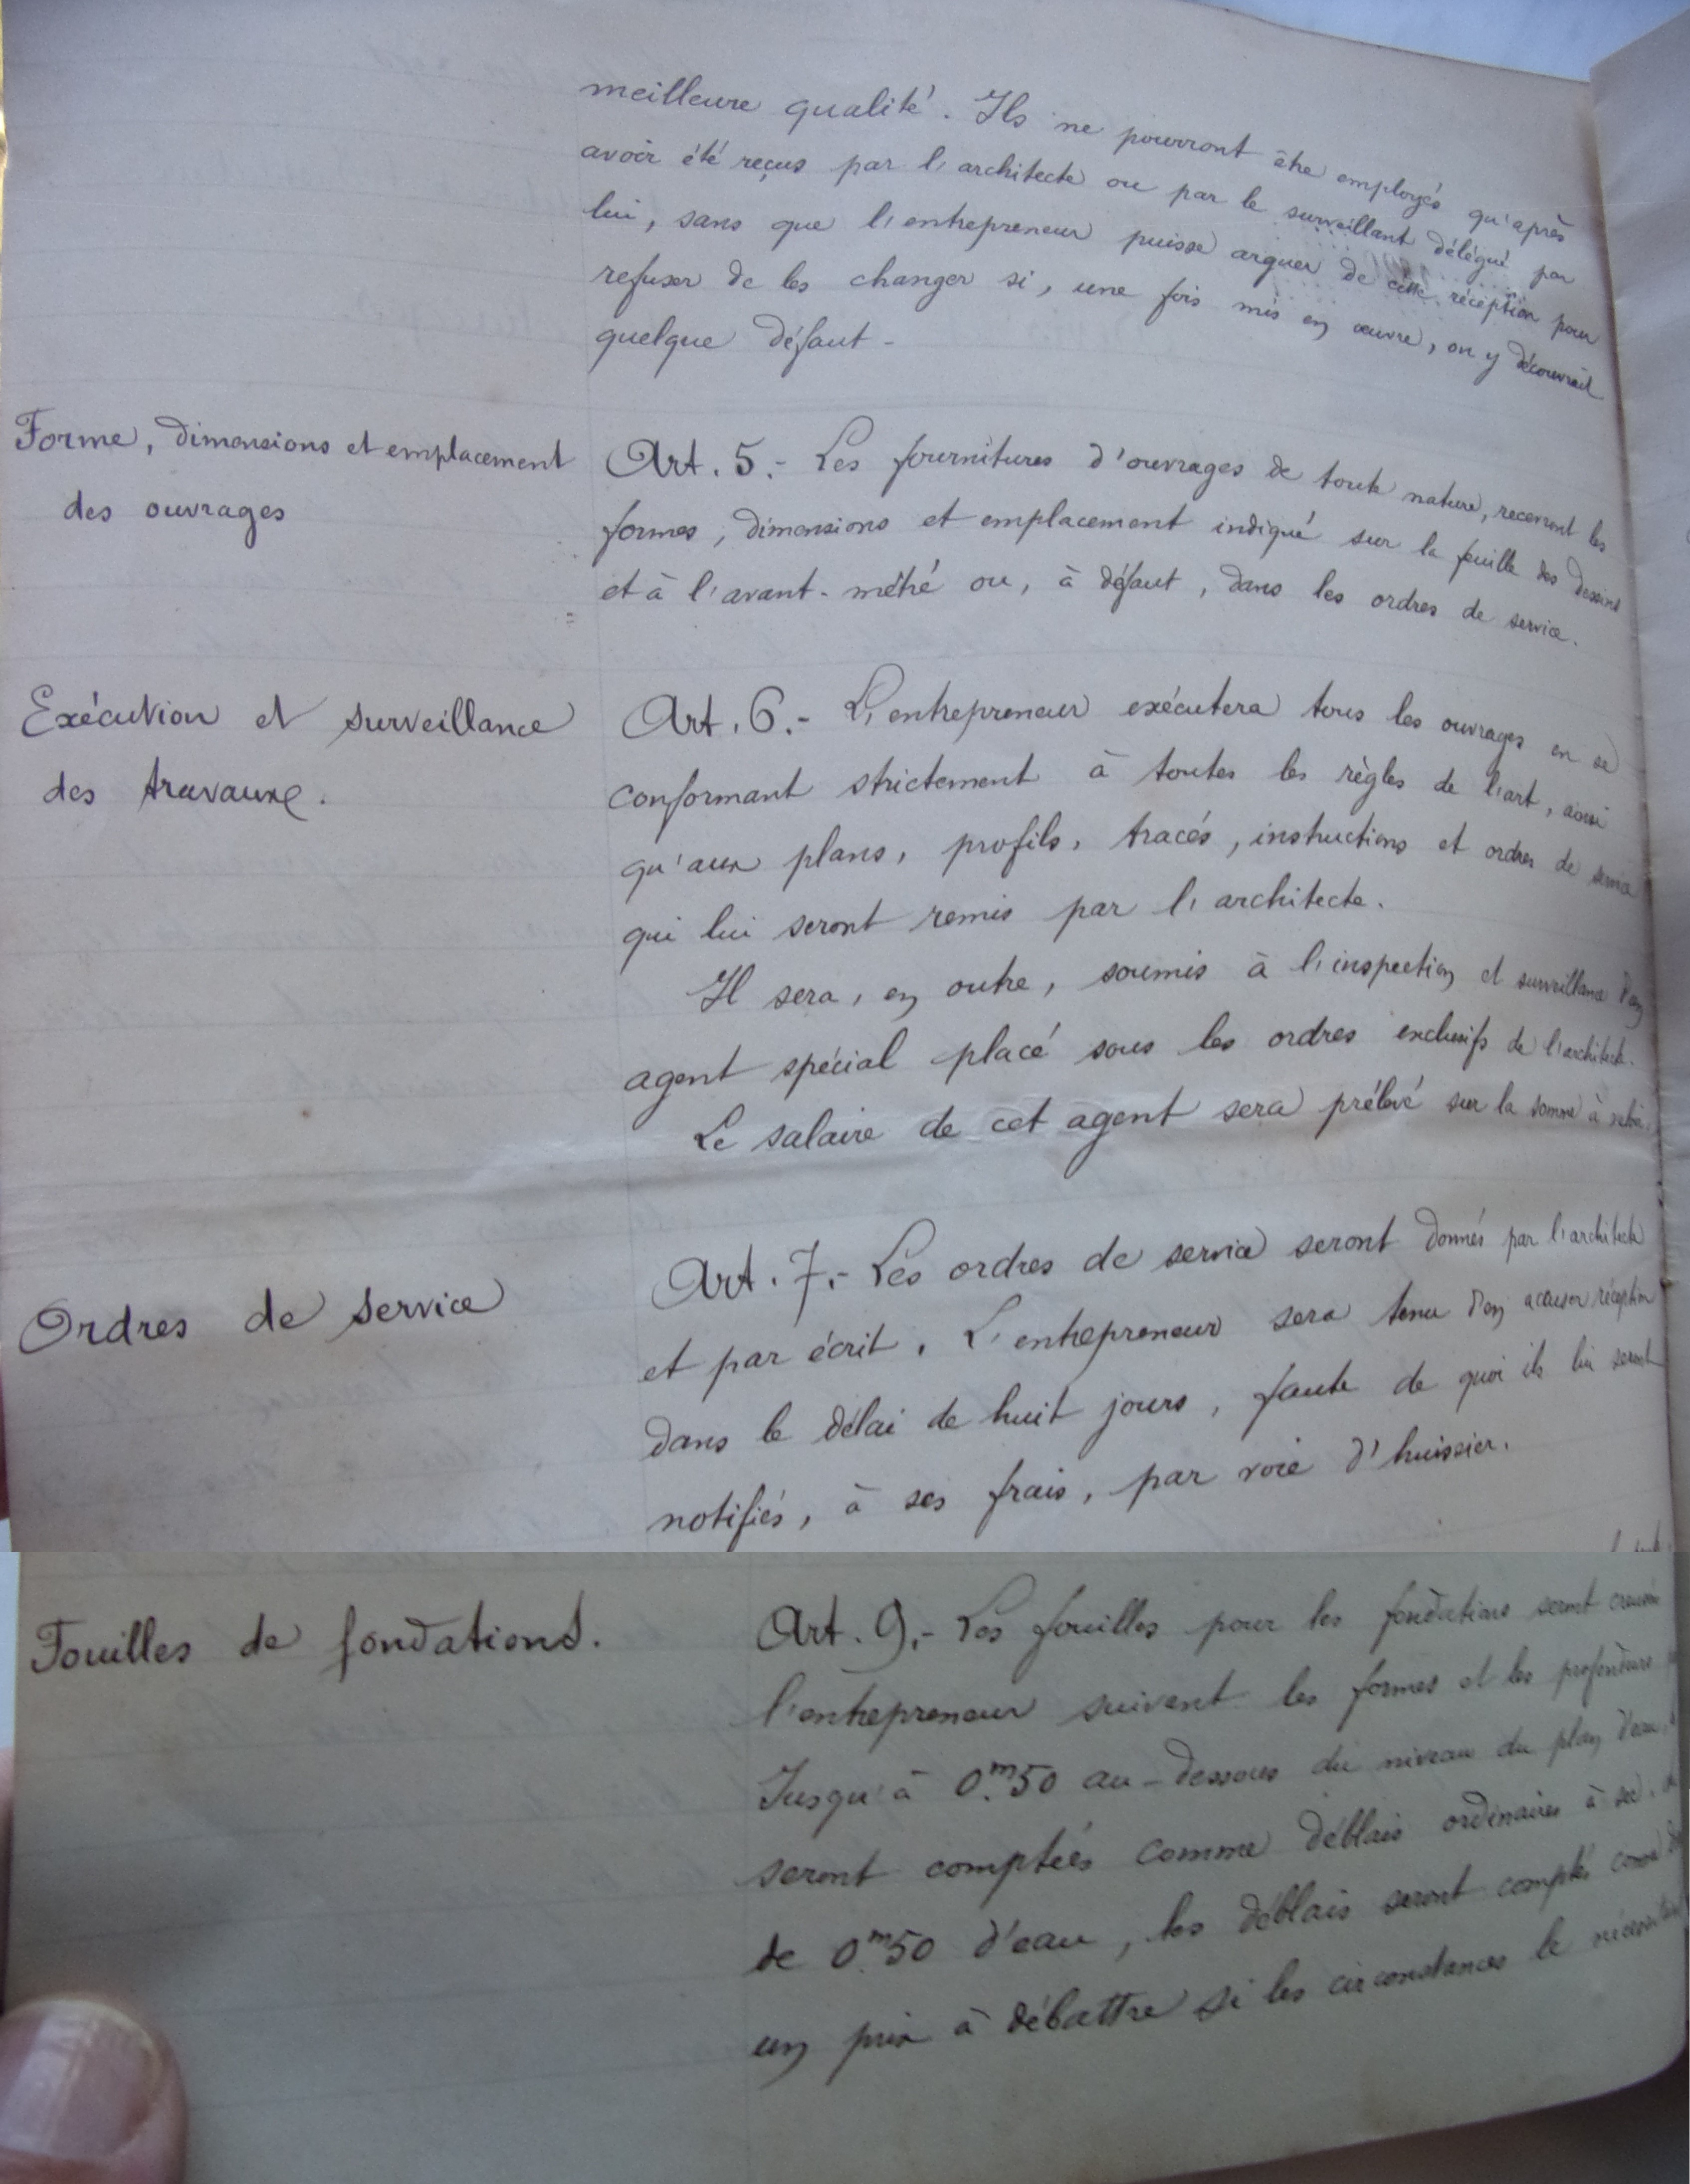 meilleure qualité. Ils ne pourront être employés qu'après
avoir été reçus par l'architecte ou par le surveillant délégué par
lui, sans que l'entrepreneur puisse arguer de cette réception pour
refuser de les changer si, une fois mis en œuvre, on y découvrait
quelque défaut -
Forme, dimensions et emplacement
des ouvrages
Art. 5.- Les fournitures d'ouvrages de toute nature, recevront les
formes, dimensions et emplacement indiqué sur la feuille des dessins
et à l'avant-métré ou, à défaut, dans les ordres de service.
Exécution et surveillance
des travaux.
Art. 6.- L'entrepreneur exécutera tous les ouvrages en se
conformant strictement à toutes les règles de l'art, ainsi
qu'aux plans, profils, tracés, instructions et ordres de service
qui lui seront remis par l'architecte.
Il sera, en outre, soumis à l'inspection et surveillance d'un
agent spécial placé sous les ordres exclusifs de l'architecte.
Le salaire de cet agent sera prélevé sur la somme à
Ordres de service
Art. 7.- Les ordres de service seront donnés par l'architecte
et par écrit. L'entrepreneur sera tenu d'en accuser réception
dans le délai de huit jours, faute de quoi ils lui seront
notifiés, à ses frais, par voie d'huissier.
Fouilles de fondations.
Art. 9.- Les fouilles pour les fondations seront
l'entrepreneur suivant les formes et les profondeurs
Jusqu'à 0.m50 au-dessous du niveau du plan d'eau,
seront comptées comme déblais ordinaires à sec.
de 0.m50 d'eau, les déblais seront comptés comme
un prix à débattre si les circonstances le